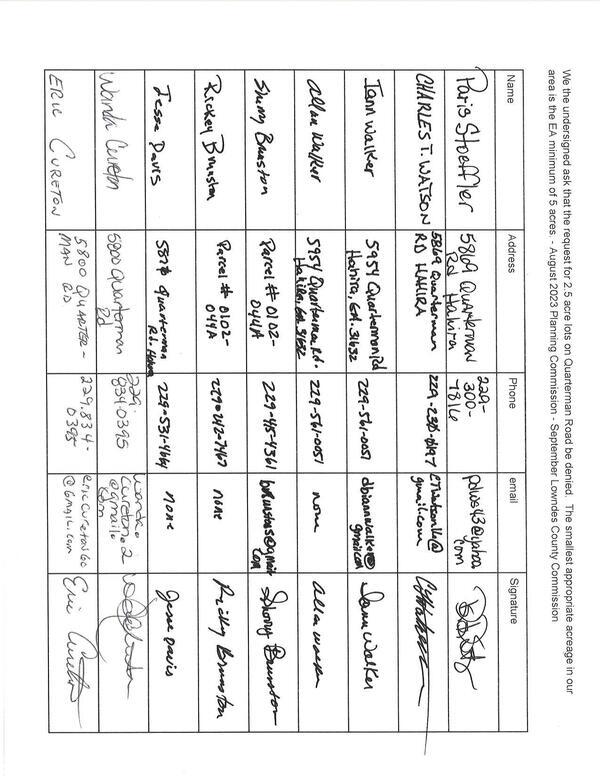 We the undersigned ask that the request for 2.5 acre lots on Quarterman Road be denied. The smallest appropriate acreage in our
area is the EA minimum of 5 acres. - August 2023 Planning Commission - September Lowndes County Commission
Name Address Phone email Signature
Paris Stoeffler
5869 QUARTERMAN
Rd Hahira
229-
300-
7816
pdws43@yahoo
com
CHARLES T. WATSON
5869 Quarterman
RD HAHIRA
229-230-0197
gmail.com
Iann Walker
5954 Quarterman Rd
Hahira, Ga. 31632
229-561-0051
dbiannwalker@
gmail.com
Iann Walker
Allan Walker
5954 Quarterman Rd.
Hahira, Ga. 31632
229-561-0051
none
Allan Walker
Sherry Brunston
Parcel # 0102-
044A
229-415-4361
Sherry Brunston
Rickey Brunston
Parcel # 0102-
044A
229-242-7467
none
Rickey Brunston
Jesse Davis
Quarterman
Rd. Hahira
229-531-4664
none
Jesse Davis
Wanda Cureton
5800 Quarterman
Rd
229-
834-0395
wandka
cureton2
@gmail.
com
ERIC CURETON
5800 QUARTER-
MAN RD
229.834-
0395
ericcureton60
@gmail.com
Eric Cureton